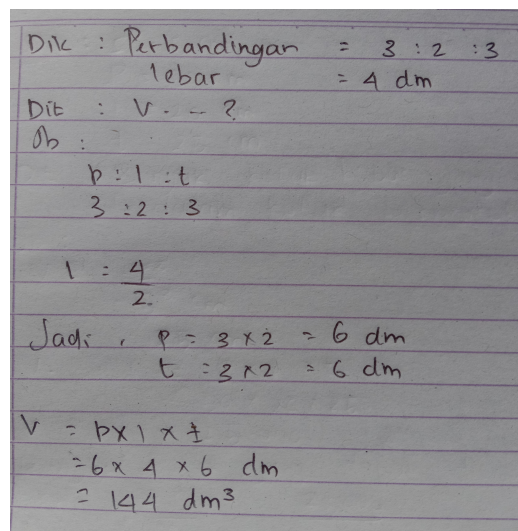 Dik : Perbandingan = 3 : 2 : 3
lebar = 4 dm
Dit : V . - - ?
Jb :
p : l : t
3 : 2 : 3
l = 4/2
Jadi , p = 3 x 2 = 6 dm
t = 3 x 2 = 6 dm
V = p x l x t
= 6 x 4 x 6 dm
= 144 dm³